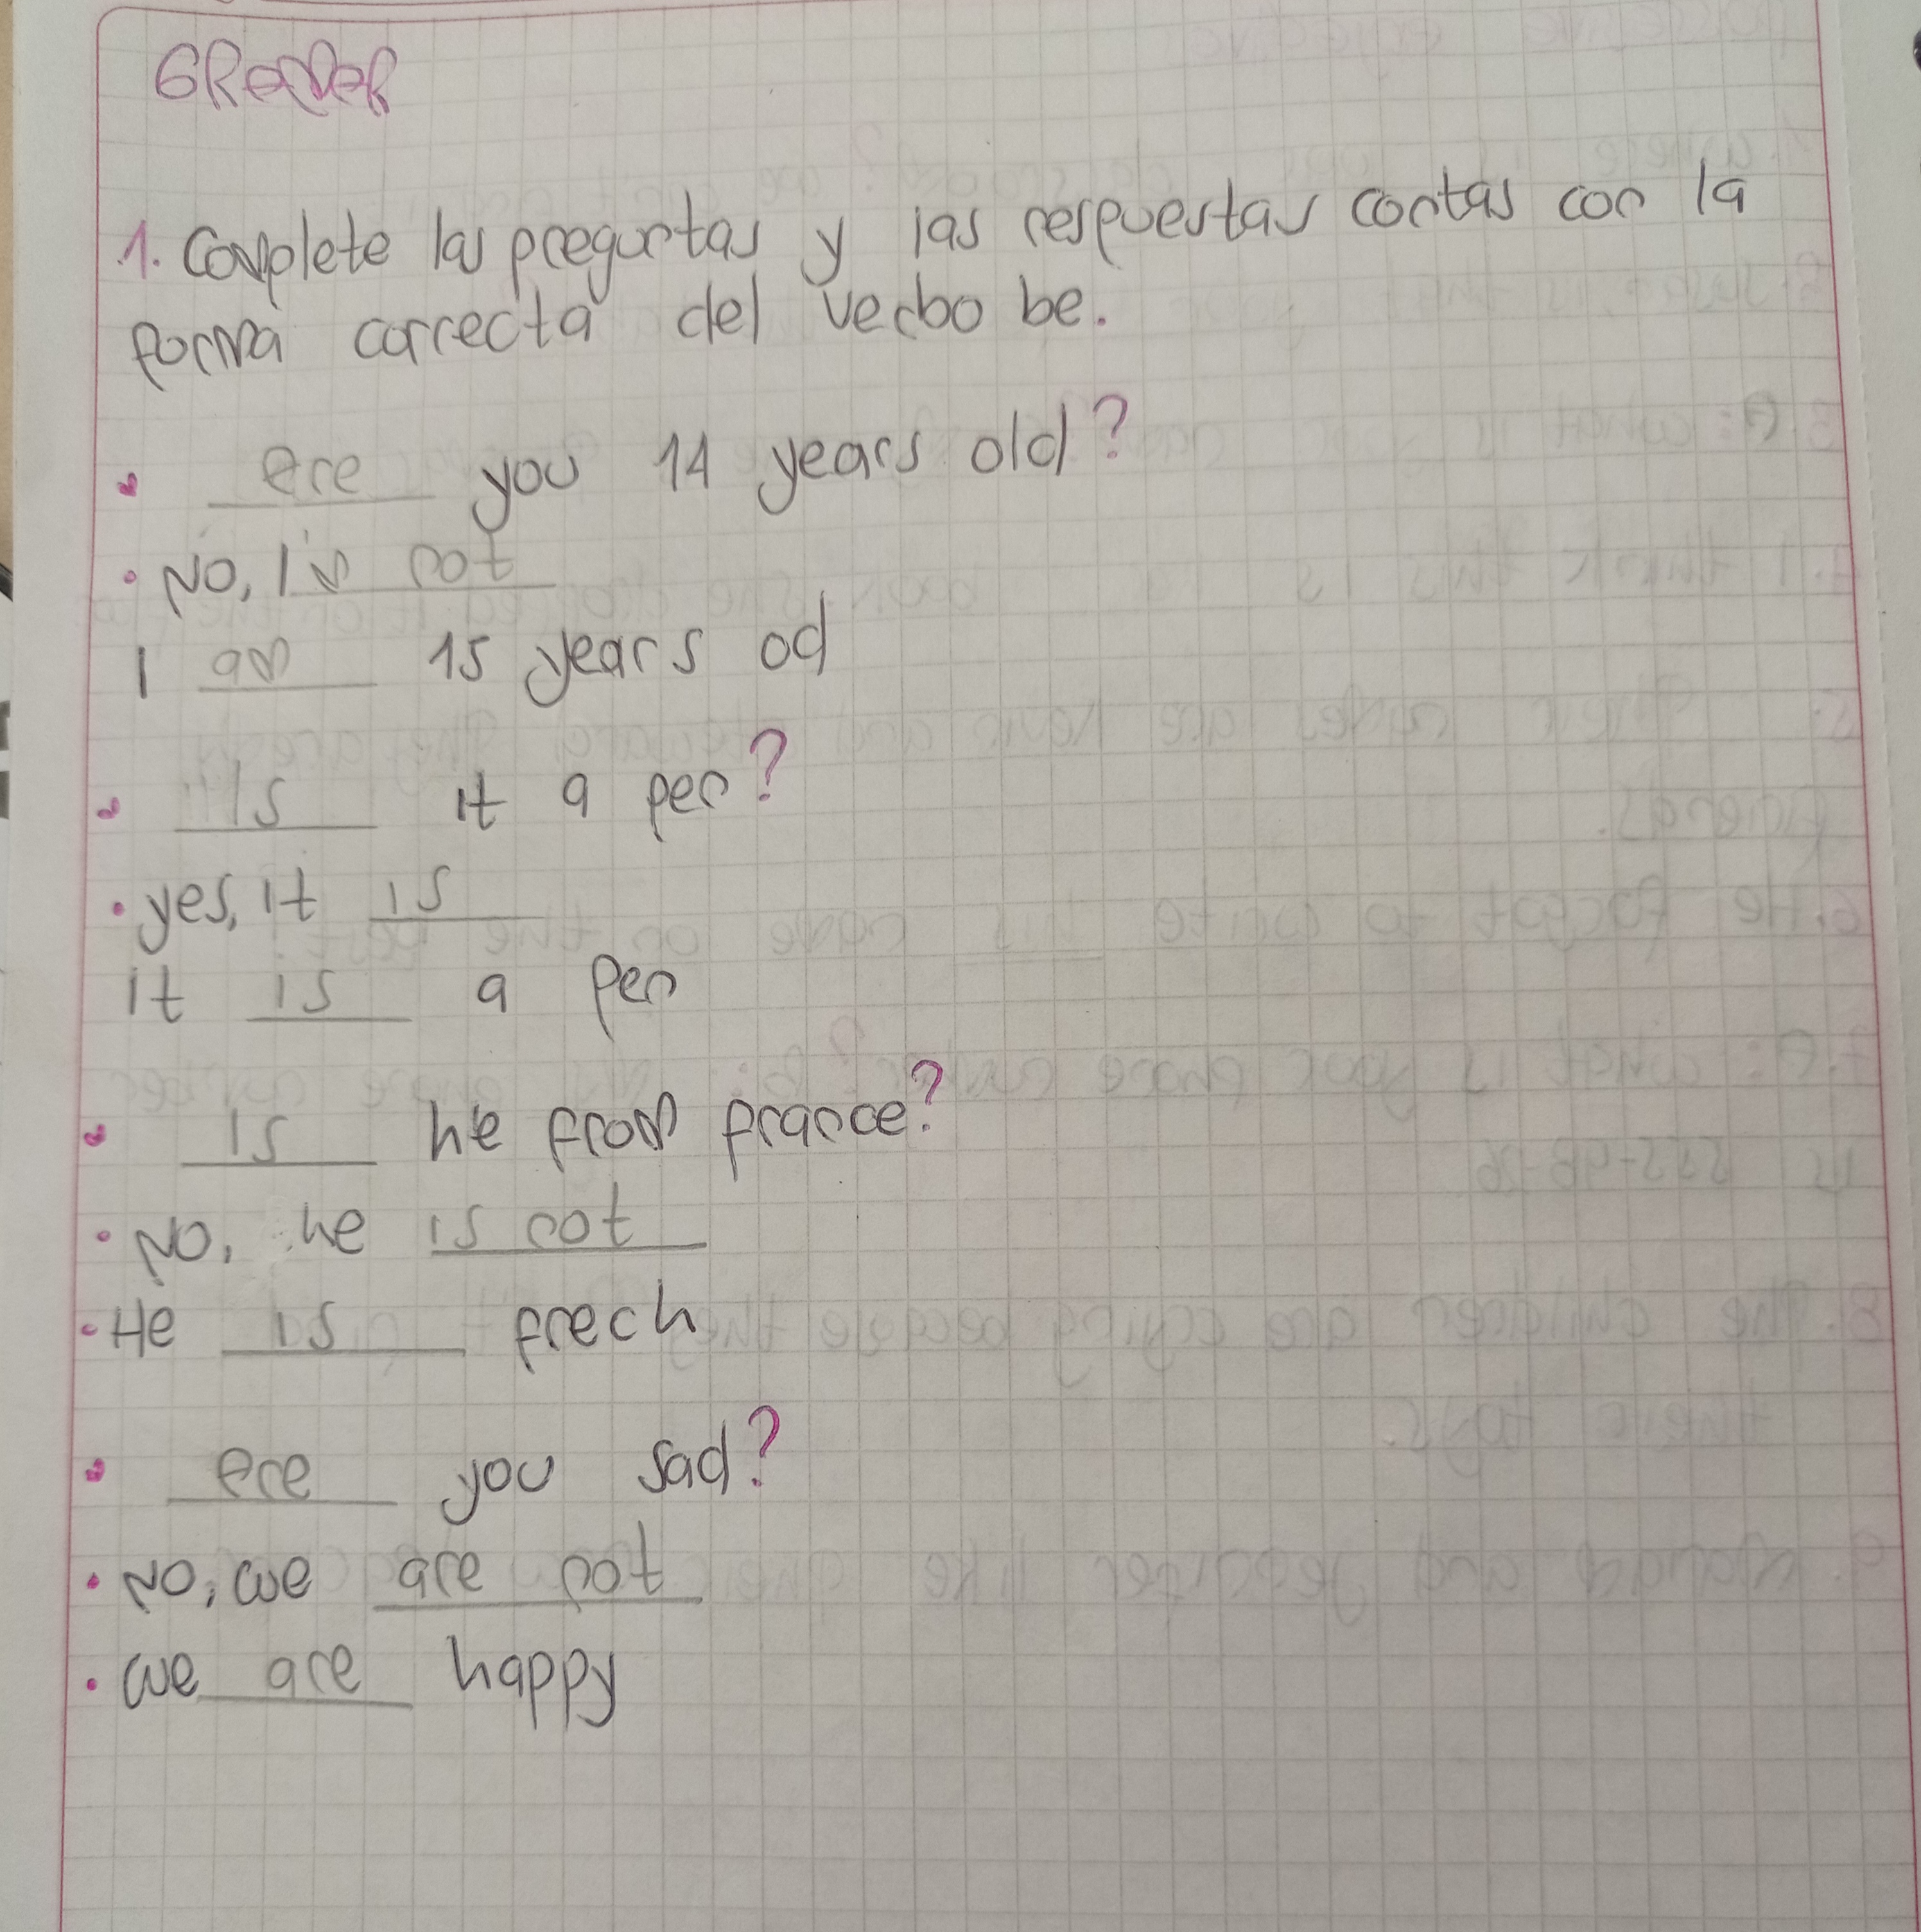 GRammar
1. Complete las preguntas y las respuestas cortas con la
forma correcta del verbo be.
Are you 14 years old?
• No, I'm not
I am 15 years od
Is it a pen?
• yes, it is
it is a pen
is he from france?
• No, he is not
• He is frech
Are you sad?
• No, we are not
• we are happy